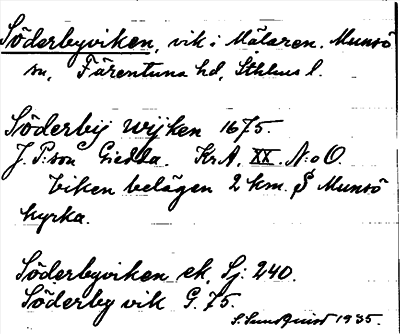 Söderbyviken, vik i Mälaren. Munsö
sn, Färentuna hd, Sthlms l.
Söderbij Wijken 1675.
J. P:son Giedda. KrA. XX. N:o O.
Viken belägen 2 km. S Munsö
kyrka.
Söderbyviken ek. Sj: 240.
Söderby vik G. 75.
S. Sundquist 1935.